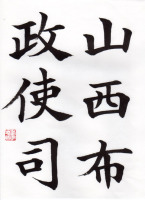 山西布
政使司